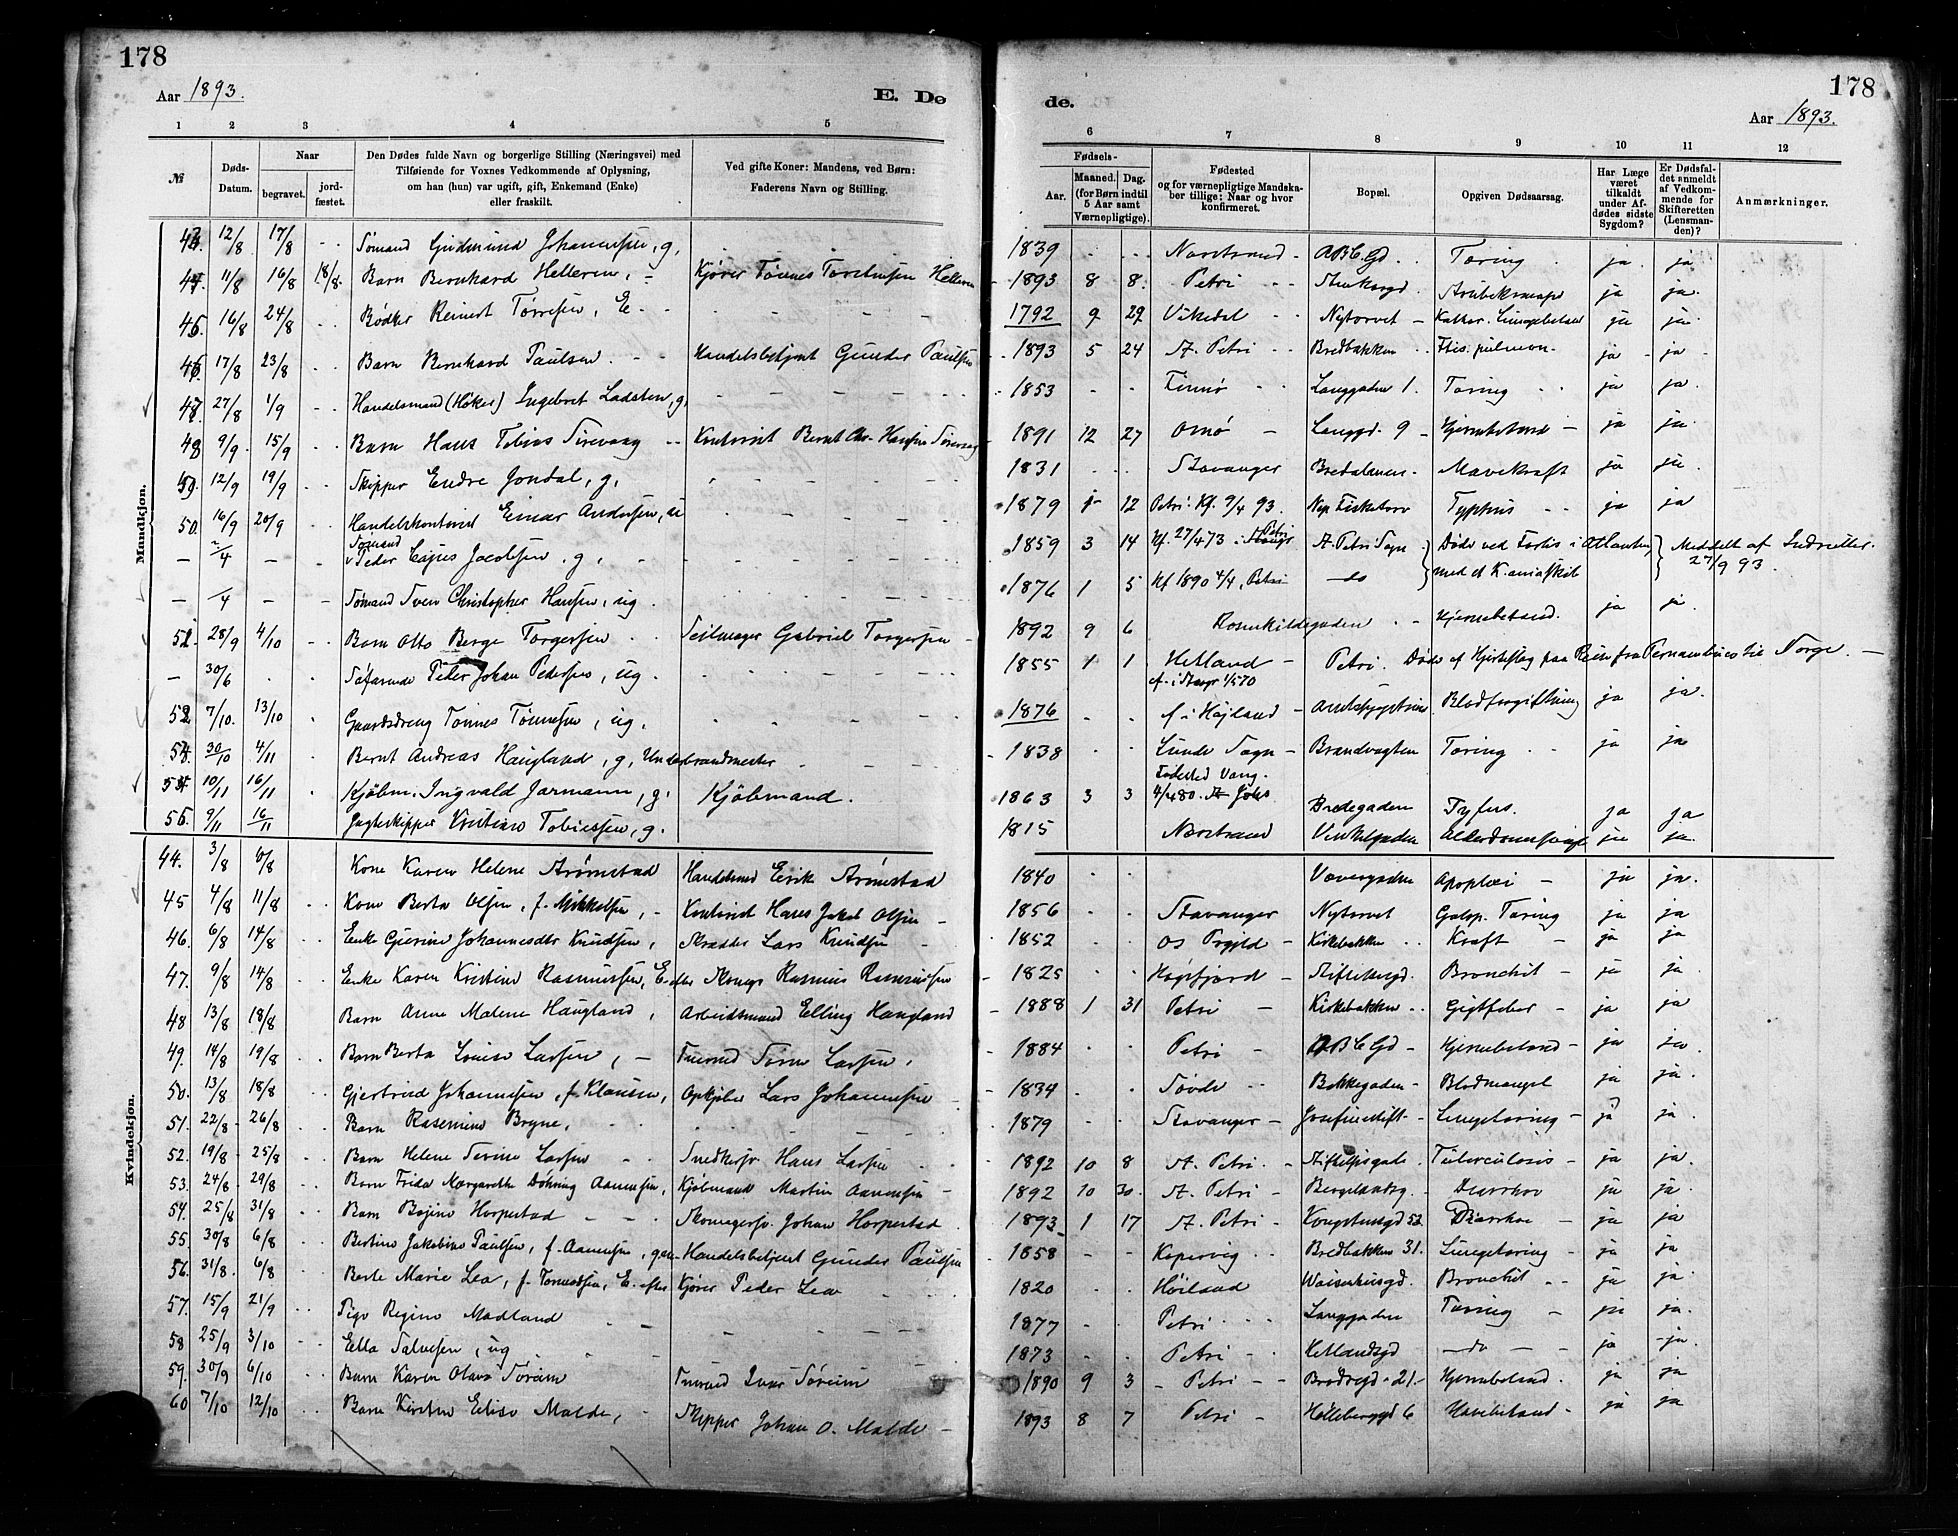 178
178
Aar 1893.
E. Dø
de.
Aar 1893.
1 2 3 4 5
6 7 8 9 10 11 12
№ Døds-Datum. Naar begravet. jordfæstet. Den Dødes fulde Navn og borgerlige Stilling (Næringsvei) med Tilføiende for Voxnes Vedkommende af Oplysning, om han (hun) var ugift, gift, Enkemand (Enke) eller fraskilt. Ved gifte Koner: Mandens, ved Børn: Faderens Navn og Stilling.
Fødsels- Aar. Maaned. Dag. (for Børn indtil 5 Aar samt Værnepligtige). Fødested og for værnepligtige Mandskaber tillige: Naar og hvor konfirmeret. Bopæl. Opgiven Dødsaarsag. Har Læge været tilkaldt under Afdødes sidste Sygdom? Er Dødsfaldet anmeldt af Vedkommende for Skifteretten (Lensmanden)? Anmærkninger.
Mandkjøn.
12/8 17/8 Sømand Gudmund Johannesen, g, 1839 Narstrand ABC Gd. Tæring ja ja
11/8 16/8 18/8. Barn Bernhard Helleren, Kjører Tønnes Torstensen Helleren 1893 8 8. Petri ja ja.
16/8 24/8 Bødker Reinert Tørresen, E 1792 9 29 Vikedal Nytorvet Kathar. Lungebetænd ja ja
17/8 23/8 Barn Bernhard Paulsen Handelsbetjent Gunder Paulsen 1893 5 24 St. Petri Bredbakken ja ja
47. 27/8 1/9 Handelsmand (Høker) Ingebret Ladsten, g, 1853 Finnø Langgaden 1. Tæring ja ja
48 9/9. 15/9 Barn Hans Tobias Sirevaag Kontorist Bernt Chr. Hansen Sirevaag 1891 12 27 Omø Langgd. 9 Hjernebetænd ja ja.
12/9 19/9 Skipper Endre Jondal, g, 1831 Stavanger Bredalmen. Mavekræft ja ja
50. 16/9 20/9 Handelskontorist Einar Andersen, u 1879 12 Petri: Kf. 9/4 93. Nye Fisketorv Typhus ja ja
/4 Sømand Peder Jacobsen, g, 1859 3 14 kf. 27/4 73 i Petri St. Petri Sogn Døde ved Forlis i Atlanten Meddelt af Indretter. 27/9 93.
/4 Sømand Sven Christopher Hansen, ug. 1876 1 5 kf 1890 4/4, Petri do med et K.aniaskib
28/9 4/10 Barn Otto Berge Torgersen Seilmager Gabriel Torgersen 1892 9 6 Rosenkildegaden Hjernebetænd. ja ja.
30/6 Søfarende Peder Johan Pedersen, ug. 1855 1 1 Hetland Petri. Død af Hjerteslag paa Reise fra Pernambuco til Norge.
7/10. 13/10 Gaardsdreng Tønnes Tønnesen, ug. 1876 f i Højland Blodforgiftning ja ja.
30/10 4/11 Bernt Andreas Haugland, g, Underbrandmester 1838 Lunde Sogn Brandvagten Tæring ja ja
10/11 16/11 Kjøbm. Ingvald Jarmann, g. Kjøbmand. 1863 3 3 Fødested Vang. Bredegaden Tyfus. ja ja
9/11 16/11 Jagteskipper Kristian Tobiassen, g. 1815 Nærstrand Vinkelgaden Alderdomssvag ja ja.
Kvindekjøn.
44. 3/8 6/8 Kone Karen Helene Årømstad Handelsmd Eirik Årømstad 1840 Vævergaden Apoplexi ja ja.
45 4/8 11/8 Kone Berta Olsen, f. Mikkelsen, Kontorist Hans Jakob Olsen 1856 Stavanger Nytorvet Galop. Tæring ja ja
46. 6/8 14/8 Enke Gjerine Johannesdtr Knudsen, Skrædder Lars Knudsen 1852 Kirkebakken Kræft ja ja
47. 9/8 14/8 Enke Karen Kristine Rasmussen, E. efter Skomgr Rasmus Rasmussen 1825 Høgsfjord Bronchit ja ja
48 13/8 18/8 Barn Anne Malene Haugland, Arbeidsmand Elling Haugland 1888 1 31 Petri Kirkebakken Gigtfeber ja ja
49. 14/8 19/8 Barn Berta Louise Larsen, Larsen, 1884 Petri ABC Gd Hjernebetænd ja ja
50. 13/8 18/8 Gjertrud Johannesen, f. Klausen, Opkjøber Lars Johannesen 1834 Søvde Bakkegaden Blodmangel ja ja.
51. 22/8 26/8 Barn Rasmine Bryne, 1879 Stavanger Josefinestift Lungetæring ja ja.
52. 19/8 25/8 Barn Helene Serine Larsen Snedkersv Hans Larsen 1892 10 8 St. Petri. Tuberculosis ja ja.
53. 24/8 29/8 Barn Frida Margarethe Døhning Aanensen, Kjøbmand Martin Aanensen 1892 10 30. St. Petri Bergelandsg. Diarrhoe ja ja
54. 25/8 31/8 Barn Bojine Horpestad Skomagersv. Johan Horpestad 1893 1 17 St. Petri Kongstensgd 53 Diarrhoe ja ja
55. 30/8 6/8 Bertine Jakobine Paulsen, f. Aanensen, Handelsbetjent Gunder Paulsen 1858 Kopervig Bredbakken 31. Lungetæring ja ja
56. 31/8. 6/8 Berte Marie Lea, f. Tormodsen, E. efter Kjører Peder Lea 1820 Høiland Waisenhusgd. Bronchit ja ja
57. 15/9 21/9 Pige Regine Madland 1877 Petri Langgaden Tæring ja ja.
58 25/9 3/10 Ella Salvesen, ug 1873 Petri Hetlandsgd do ja ja.
59. 30/9 6/10 Barn Karen Olava Søreim Ivar Søreim 1890 9 3 Petri 21. Hjernebetænd. ja ja
60 7/10 12/10 Barn Kirsten Elise Malde, Skipper Johan O. Malde 1893 8 7 Petri ja ja